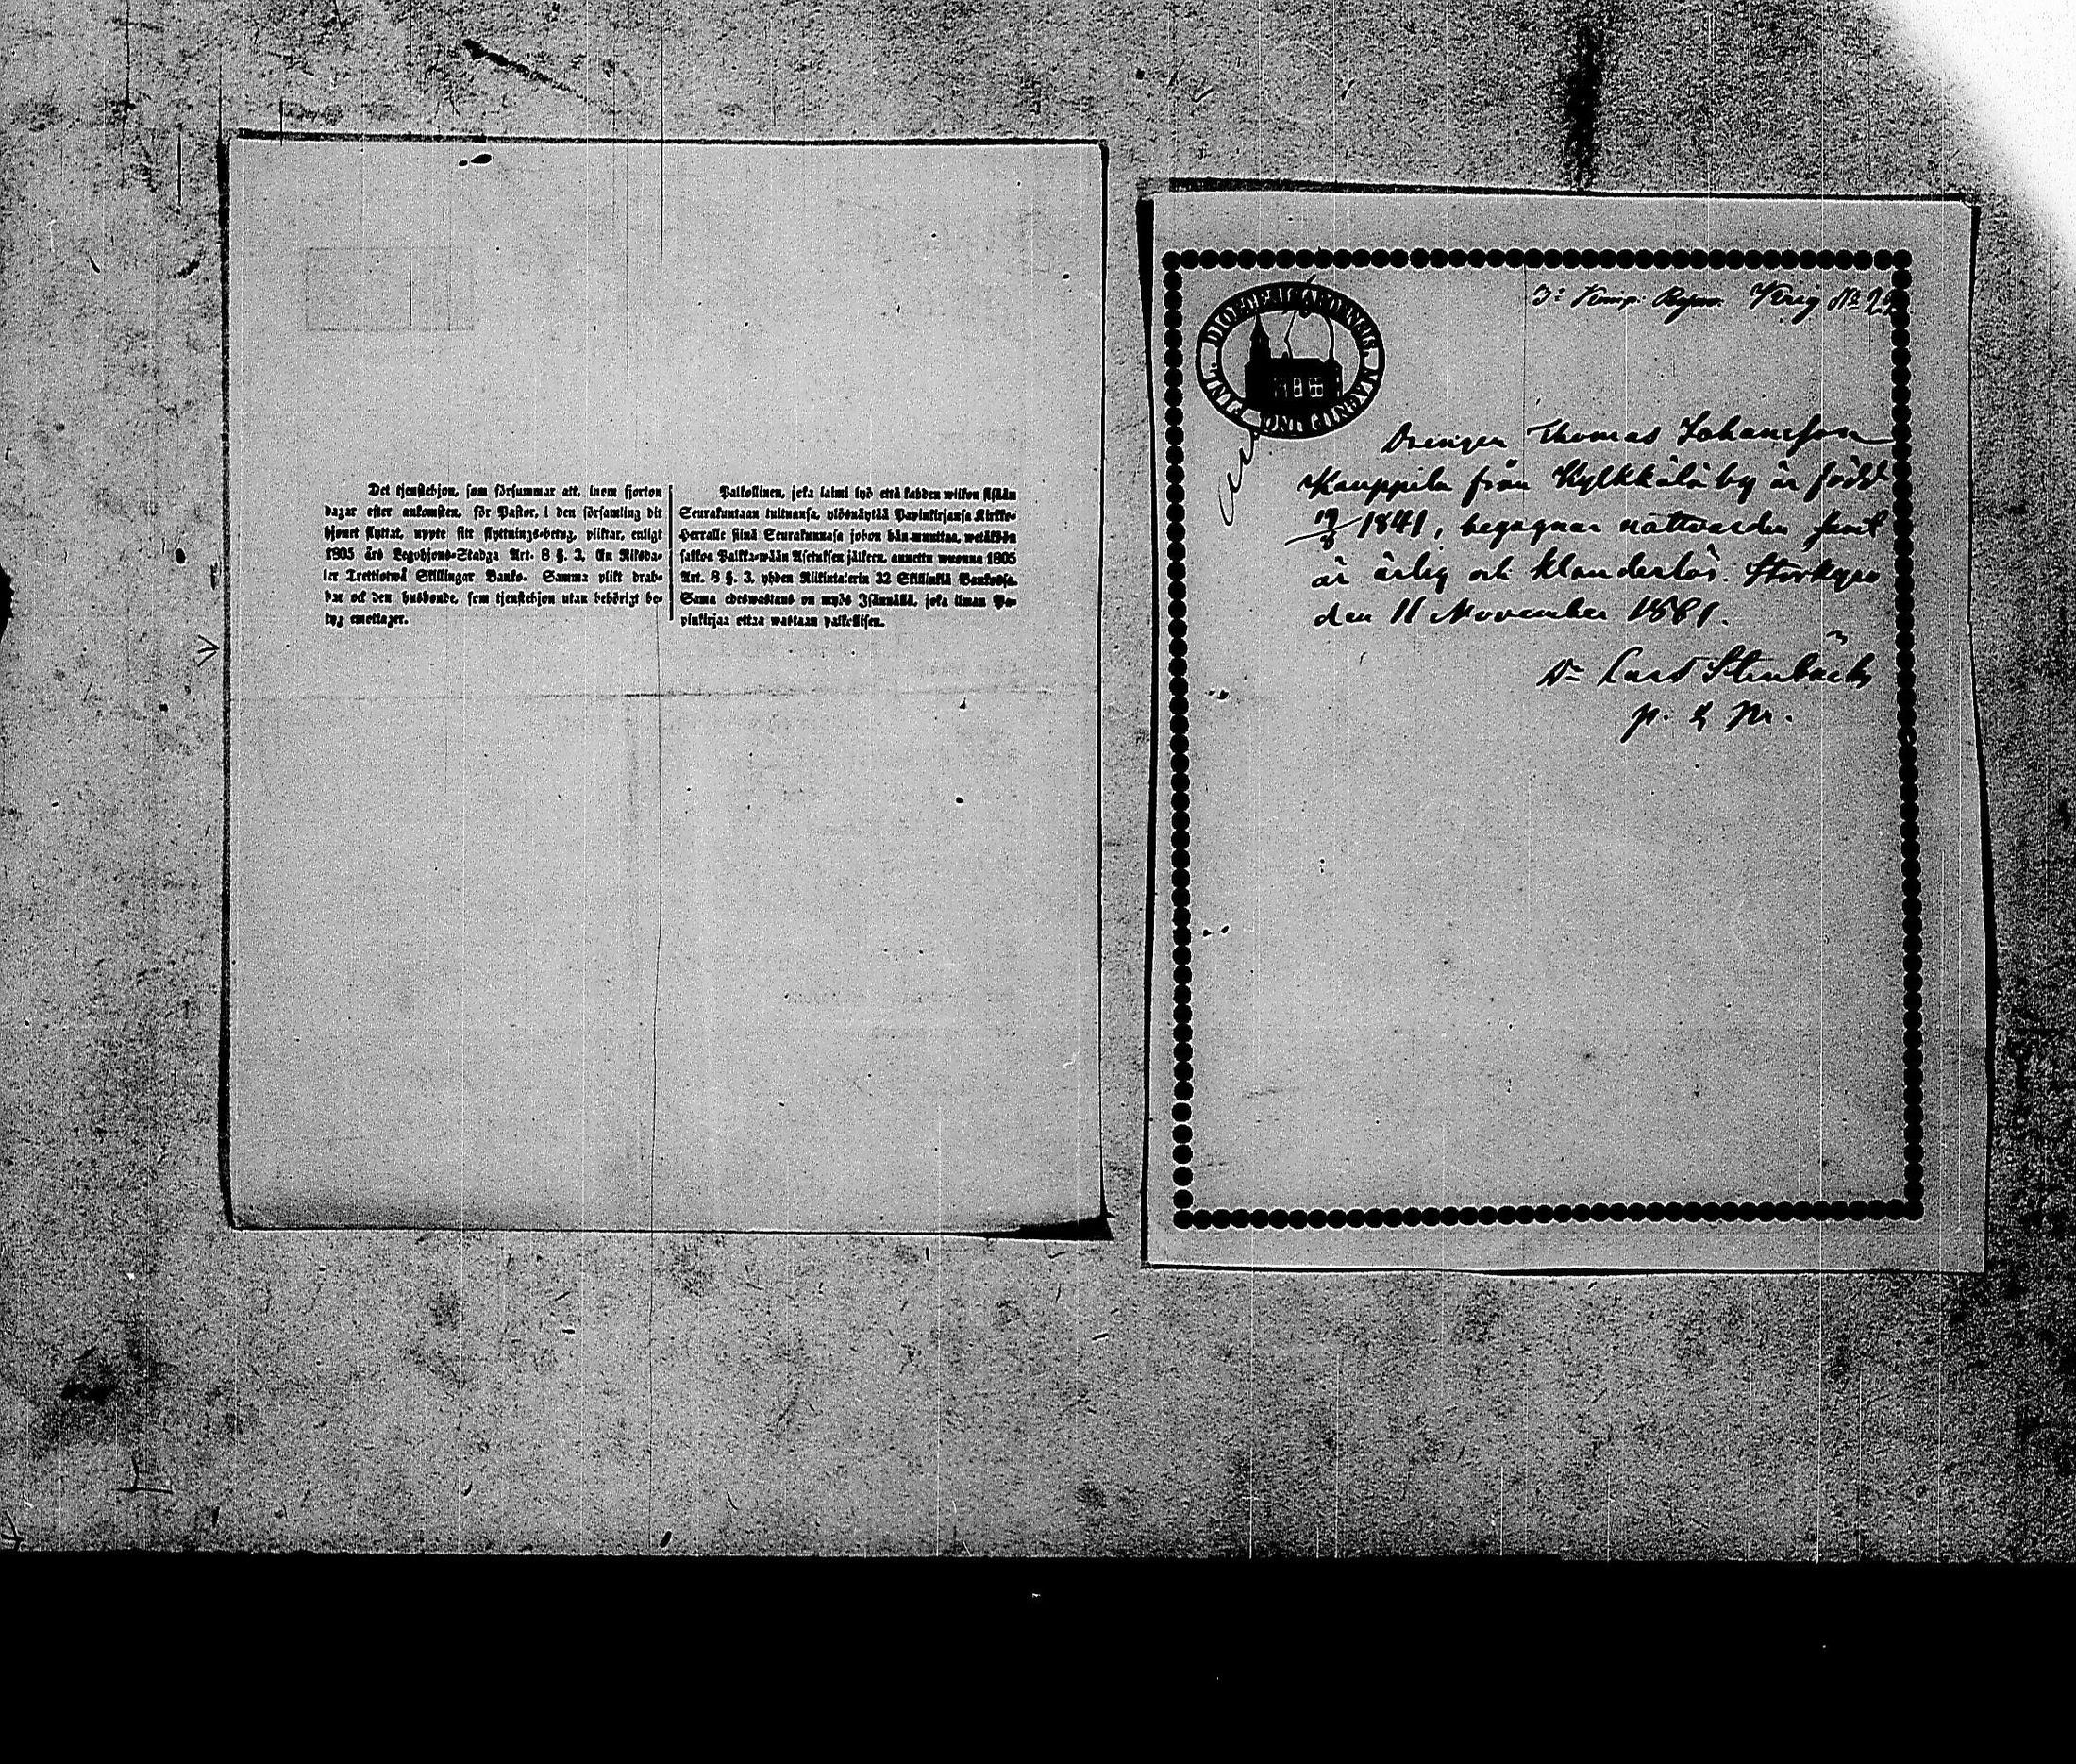 Det tjenstehjon, som försummar att, inom fjorton
dagar efter ankomsten, för Pastor, i den församling dit
hjonet flyttat, uppte sitt flyttnings-betyg, pliktar, enligt
1805 års Legohjons-Stadga Art. 8 §. 3, En Riksda-
ler Trettiotwå Skillingar Banko. Samma plikt drab-
bar ock den husbonde, som tjenstehjon utan behörigt be-
tyg emottager.
Palkollinen, joka laimi lyö että kahden wiikon sisään
Seurakuntaan tultuansa, ylösnäyttää Papinkirjansa Kirkko-
Herralle siinä Seurakunnasa johon hän muuttaa, wetäköön
sakkoa Palkkawään Asetuksen jälkeen, annettu wuonna 1805
Art. 8 §. 3, yhden Riikintalerin 32 Skillinkiä Bankossa.
Sama edeswastaus on myös Isännällä, joka ilman Pa-
pinkirjaa ottaa wastaan palkollisen.
3: Komp: Werig No 22
DIOECESIS MAGNI PRINC. FINL.
Drengen Thomas Johansson
Kauppila från Kylkkälä by är född
19/8 1841, begagnar nattvarden samt
är ärlig och klanderlös. Storkyro
den 11 November 1861.
Lars Stenbäck
p. & pr.